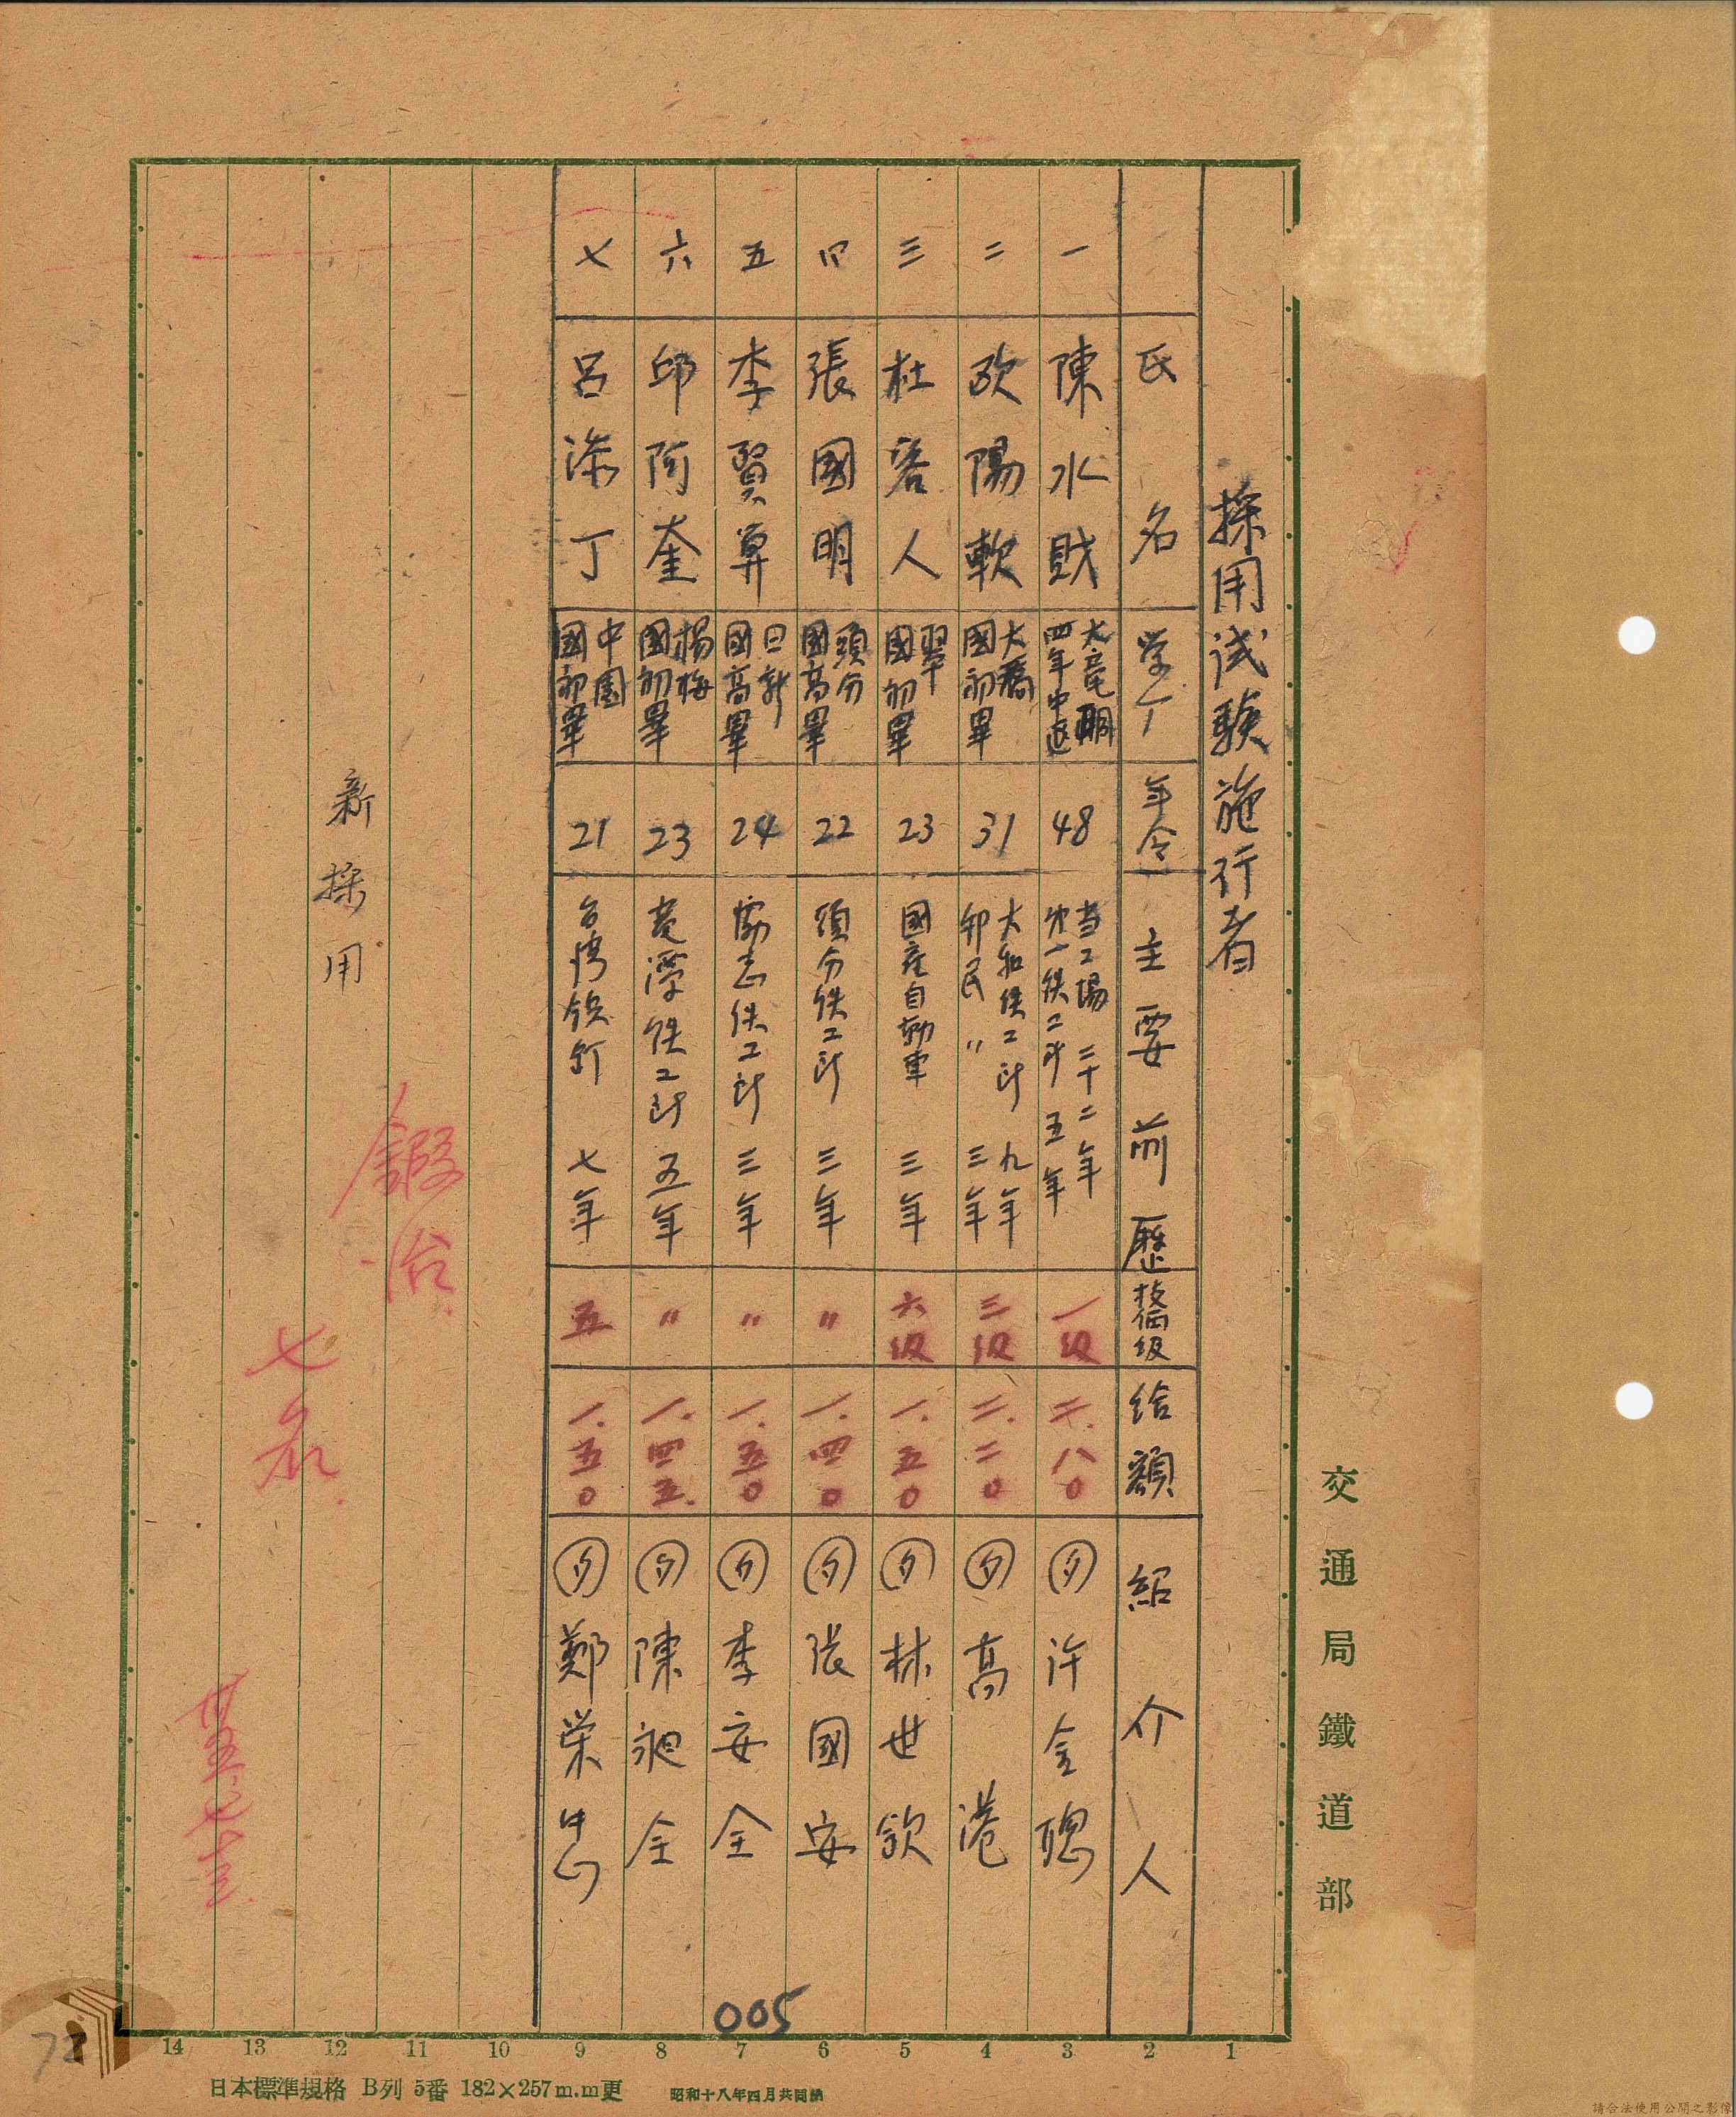 採用試驗施行者
氏名 学丁 年令 主要前歷 技倆級 給額 紹介人
一 陳水財 大竜峒 四年中退 48 当工場 二十二年 五年 一級 二.八〇 許金聰
二 歐陽軟 大橋 國初畢 31 大和鉄工所 九年 三年 三級 二.二〇 高港
三 杜客人 國初畢 23 國産自動車 三年 六級 一.五〇 林世欽
四 張國明 頭分 國高畢 22 頭分鉄工所 三年 〃 一.四〇 張國安
五 李賢算 日新 國高畢 24 協志鉄工所 三年 〃 一.五〇 李安全
六 邱阿奎 楊梅 國初畢 23 鉄工所 五年 〃 一.四五 陳昶全
七 呂添丁 中園 國初畢 21 台湾 七年 五 一.五〇 鄭栄忠
新採用
鍛冶
七名
交通局鐵道部
005
72
14 13 12 11 10 9 8 7 6 5 4 3 2 1
日本標準規格 B列 5番 182×257m.m更
昭和十八年四月共同納
請合法使用公開之影像